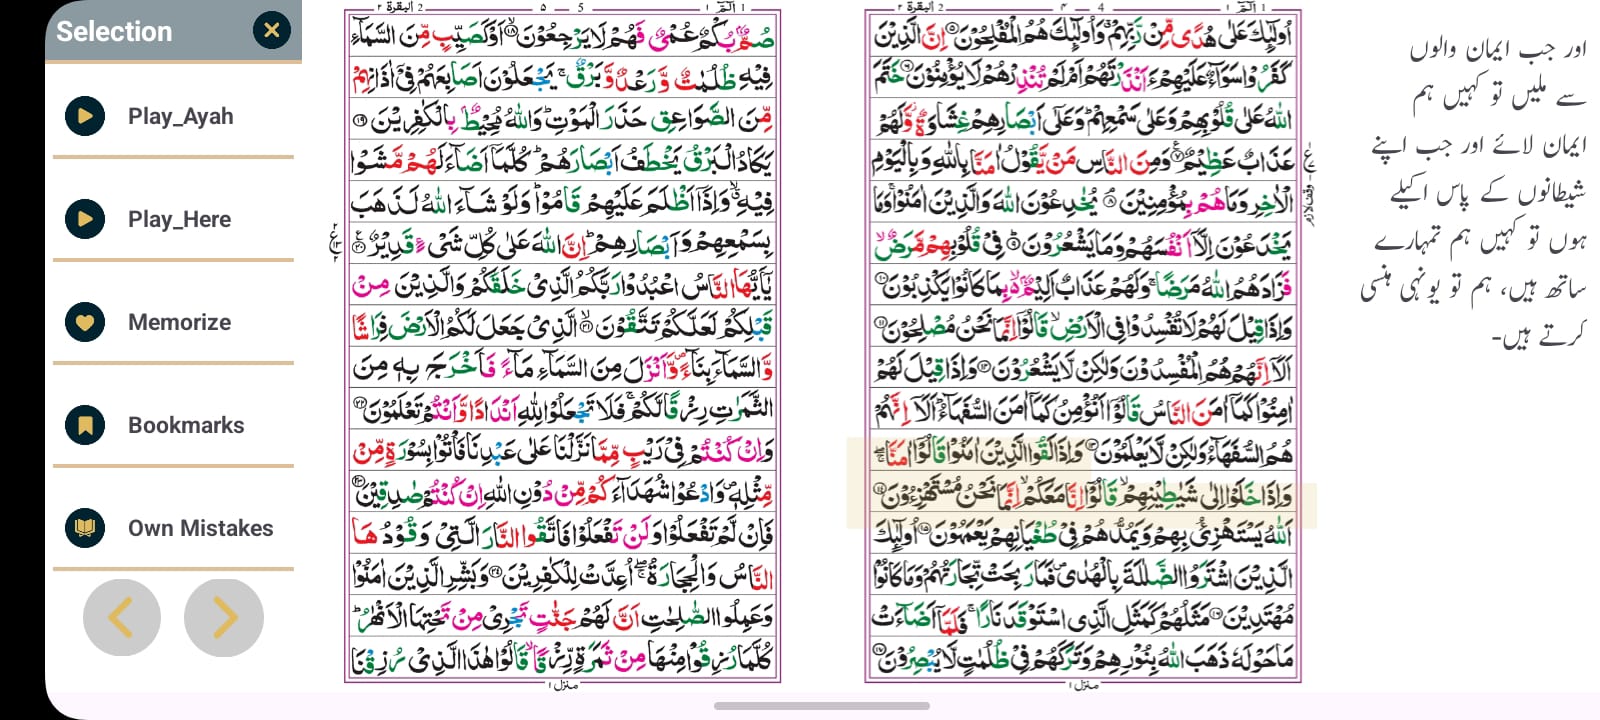 Selection
Play_Ayah
Play_Here
Memorize
Bookmarks
Own Mistakes
2 البقرة ۲
۵
5
1 الٓمّٓ ۱
صُمٌّۢ بُكْمٌ عُمْیٌ فَهُمْ لَا یَرْجِعُوْنَ ۙ۱۸ اَوْ كَصَیِّبٍ مِّنَ السَّمَآءِ
فِیْهِ ظُلُمٰتٌ وَّ رَعْدٌ وَّ بَرْقٌ ۚ یَجْعَلُوْنَ اَصَابِعَهُمْ فِیْۤ اٰذَانِهِمْ
مِّنَ الصَّوَاعِقِ حَذَرَ الْمَوْتِ ؕ وَ اللّٰهُ مُحِیْطٌۢ بِالْكٰفِرِیْنَ ۱۹
یَكَادُ الْبَرْقُ یَخْطَفُ اَبْصَارَهُمْ ؕ كُلَّمَاۤ اَضَآءَ لَهُمْ مَّشَوْا
فِیْهِ ۙۗ وَ اِذَاۤ اَظْلَمَ عَلَیْهِمْ قَامُوْا ؕ وَ لَوْ شَآءَ اللّٰهُ لَذَهَبَ
بِسَمْعِهِمْ وَ اَبْصَارِهِمْ ؕ اِنَّ اللّٰهَ عَلٰی كُلِّ شَیْءٍ قَدِیْرٌ ۠۲۰
یٰۤاَیُّهَا النَّاسُ اعْبُدُوْا رَبَّكُمُ الَّذِیْ خَلَقَكُمْ وَ الَّذِیْنَ مِنْ
قَبْلِكُمْ لَعَلَّكُمْ تَتَّقُوْنَ ۙ۲۱ الَّذِیْ جَعَلَ لَكُمُ الْاَرْضَ فِرَاشًا
وَّ السَّمَآءَ بِنَآءً ۪ وَّ اَنْزَلَ مِنَ السَّمَآءِ مَآءً فَاَخْرَجَ بِهٖ مِنَ
الثَّمَرٰتِ رِزْقًا لَّكُمْ ۚ فَلَا تَجْعَلُوْا لِلّٰهِ اَنْدَادًا وَّ اَنْتُمْ تَعْلَمُوْنَ ۲۲
وَ اِنْ كُنْتُمْ فِیْ رَیْبٍ مِّمَّا نَزَّلْنَا عَلٰی عَبْدِنَا فَاْتُوْا بِسُوْرَةٍ مِّنْ
مِّثْلِهٖ ۪ وَ ادْعُوْا شُهَدَآءَكُمْ مِّنْ دُوْنِ اللّٰهِ اِنْ كُنْتُمْ صٰدِقِیْنَ ۲۳
فَاِنْ لَّمْ تَفْعَلُوْا وَ لَنْ تَفْعَلُوْا فَاتَّقُوا النَّارَ الَّتِیْ وَقُوْدُهَا
النَّاسُ وَ الْحِجَارَةُ ۖۚ اُعِدَّتْ لِلْكٰفِرِیْنَ ۲۴ وَ بَشِّرِ الَّذِیْنَ اٰمَنُوْا
وَ عَمِلُوا الصّٰلِحٰتِ اَنَّ لَهُمْ جَنّٰتٍ تَجْرِیْ مِنْ تَحْتِهَا الْاَنْهٰرُ ؕ
كُلَّمَا رُزِقُوْا مِنْهَا مِنْ ثَمَرَةٍ رِّزْقًا ۙ قَالُوْا هٰذَا الَّذِیْ رُزِقْنَا
منزل ۱
2 البقرة ۲
۴
4
1 الٓمّٓ ۱
اُولٰٓىِٕكَ عَلٰی هُدًی مِّنْ رَّبِّهِمْ ۗ وَ اُولٰٓىِٕكَ هُمُ الْمُفْلِحُوْنَ ۵ اِنَّ الَّذِیْنَ
كَفَرُوْا سَوَآءٌ عَلَیْهِمْ ءَاَنْذَرْتَهُمْ اَمْ لَمْ تُنْذِرْهُمْ لَا یُؤْمِنُوْنَ ۶ خَتَمَ
اللّٰهُ عَلٰی قُلُوْبِهِمْ وَ عَلٰی سَمْعِهِمْ ؕ وَ عَلٰۤی اَبْصَارِهِمْ غِشَاوَةٌ ؗ وَّ لَهُمْ
عَذَابٌ عَظِیْمٌ ۠۷ وَ مِنَ النَّاسِ مَنْ یَّقُوْلُ اٰمَنَّا بِاللّٰهِ وَ بِالْیَوْمِ
الْاٰخِرِ وَ مَا هُمْ بِمُؤْمِنِیْنَ ۘ۸ یُخٰدِعُوْنَ اللّٰهَ وَ الَّذِیْنَ اٰمَنُوْا ۚ وَ مَا
وقف لازم
یَخْدَعُوْنَ اِلَّاۤ اَنْفُسَهُمْ وَ مَا یَشْعُرُوْنَ ؕ۹ فِیْ قُلُوْبِهِمْ مَّرَضٌ ۙ
فَزَادَهُمُ اللّٰهُ مَرَضًا ۚ وَ لَهُمْ عَذَابٌ اَلِیْمٌۢ ۙ۬ بِمَا كَانُوْا یَكْذِبُوْنَ ۱۰
وَ اِذَا قِیْلَ لَهُمْ لَا تُفْسِدُوْا فِی الْاَرْضِ ۙ قَالُوْۤا اِنَّمَا نَحْنُ مُصْلِحُوْنَ ۱۱
اَلَاۤ اِنَّهُمْ هُمُ الْمُفْسِدُوْنَ وَ لٰكِنْ لَّا یَشْعُرُوْنَ ۱۲ وَ اِذَا قِیْلَ لَهُمْ
اٰمِنُوْا كَمَاۤ اٰمَنَ النَّاسُ قَالُوْۤا اَنُؤْمِنُ كَمَاۤ اٰمَنَ السُّفَهَآءُ ؕ اَلَاۤ اِنَّهُمْ
هُمُ السُّفَهَآءُ وَ لٰكِنْ لَّا یَعْلَمُوْنَ ۱۳ وَ اِذَا لَقُوا الَّذِیْنَ اٰمَنُوْا قَالُوْۤا اٰمَنَّا ۖۚ
وَ اِذَا خَلَوْا اِلٰی شَیٰطِیْنِهِمْ ۙ قَالُوْۤا اِنَّا مَعَكُمْ ۙ اِنَّمَا نَحْنُ مُسْتَهْزِءُوْنَ ۱۴
اَللّٰهُ یَسْتَهْزِئُ بِهِمْ وَ یَمُدُّهُمْ فِیْ طُغْیَانِهِمْ یَعْمَهُوْنَ ۱۵ اُولٰٓىِٕكَ
الَّذِیْنَ اشْتَرَوُا الضَّلٰلَةَ بِالْهُدٰی ۪ فَمَا رَبِحَتْ تِّجَارَتُهُمْ وَ مَا كَانُوْا
مُهْتَدِیْنَ ۱۶ مَثَلُهُمْ كَمَثَلِ الَّذِی اسْتَوْقَدَ نَارًا ۚ فَلَمَّاۤ اَضَآءَتْ
مَا حَوْلَهٗ ذَهَبَ اللّٰهُ بِنُوْرِهِمْ وَ تَرَكَهُمْ فِیْ ظُلُمٰتٍ لَّا یُبْصِرُوْنَ ۱۷
منزل ۱
اور جب ایمان والوں
سے ملیں تو کہیں ہم
ایمان لائے اور جب اپنے
شیطانوں کے پاس اکیلے
ہوں تو کہیں ہم تمہارے
ساتھ ہیں، ہم تو یونہی ہنسی
کرتے ہیں۔